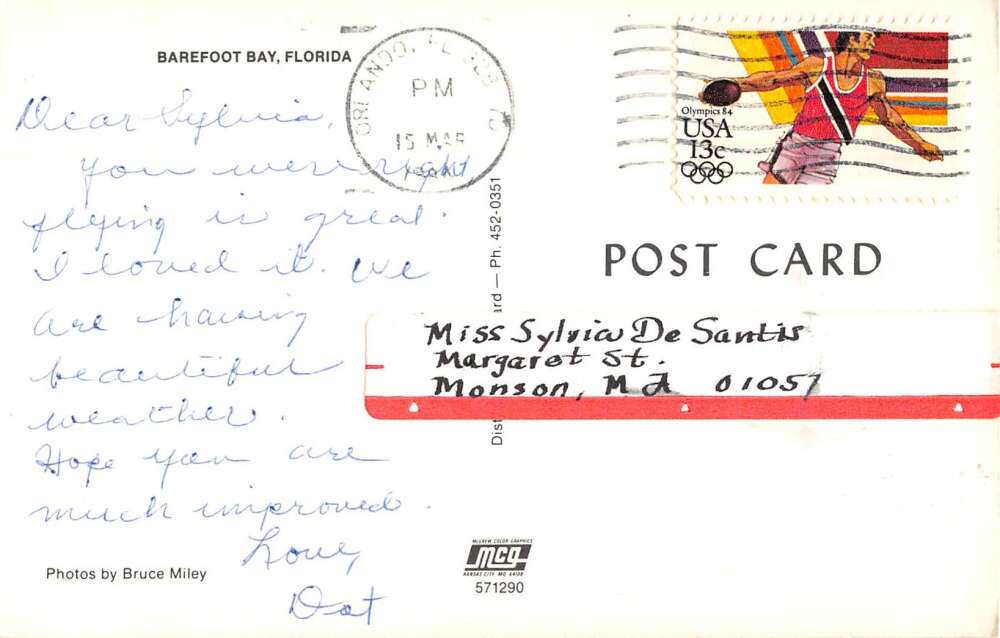 BAREFOOT BAY, FLORIDA
Dear Sylvia,
you were right
flying is great.
I loved it. We
are having
beautiful
weather.
Hope you are
much improved.
Love,
Dot
Photos by Bruce Miley
ORLANDO, FL
PM
15 MAR
Olympics 84
USA
13c
POST CARD
Miss Sylvia De Santis
Margaret St.
Monson, MA 01057
Dist
ard — Ph. 452-0351
McGREW COLOR GRAPHICS
mcg
KANSAS CITY, MO. 64108
571290